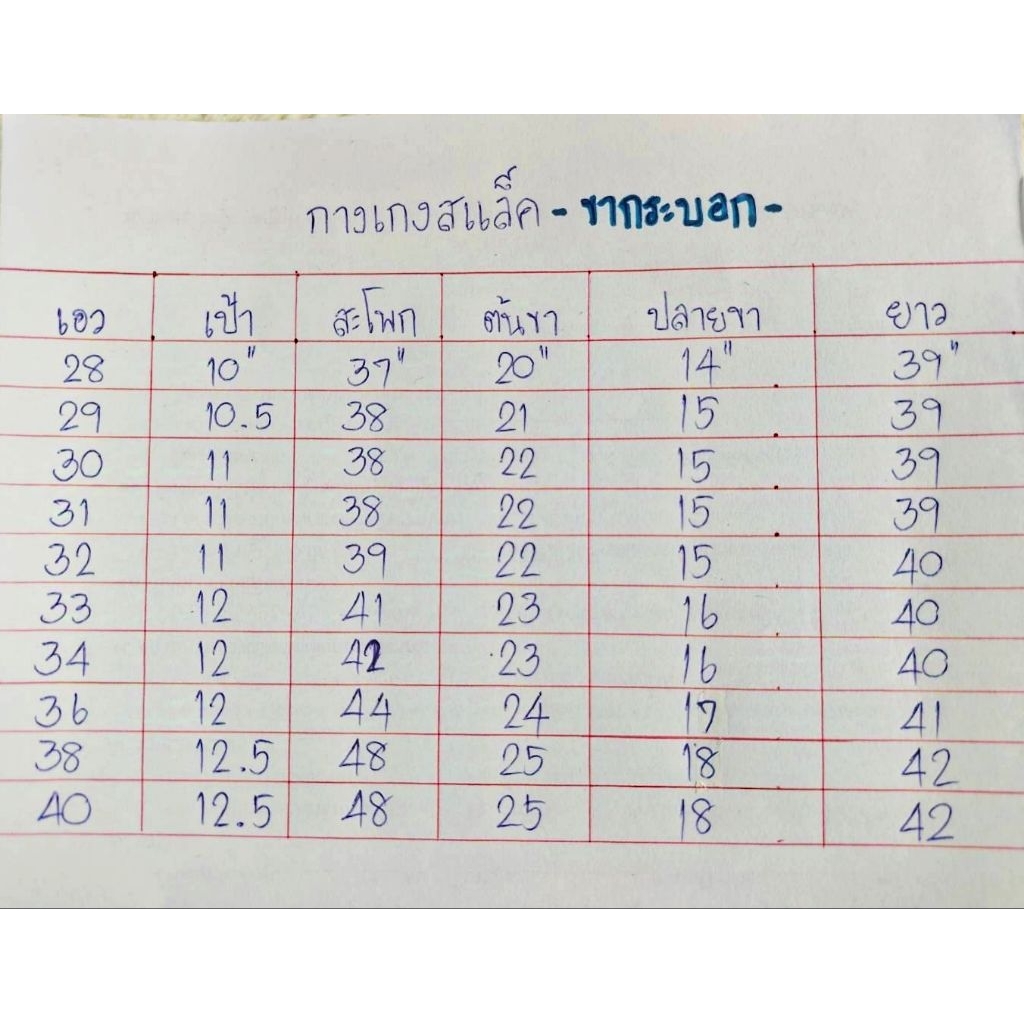 กางเกงสแล็ค - ขากระบอก -
เอว เป้า สะโพก ต้นขา ปลายขา ยาว
28 10" 37" 20" 14" 39"
29 10.5 38 21 15 39
30 11 38 22 15 39
31 11 38 22 15 39
32 11 39 22 15 40
33 12 41 23 16 40
34 12 42 23 16 40
36 12 44 24 17 41
38 12.5 48 25 18 42
40 12.5 48 25 18 42